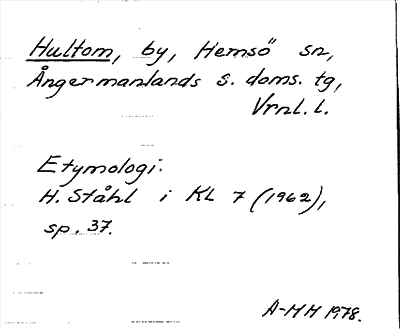 Hultom, by, Hemsö sn,
Ångermanlands s. doms. tg,
Vrnl. l.
Etymologi:
H. Ståhl i KL 7 (1962),
sp. 37.
A-MH 1978.